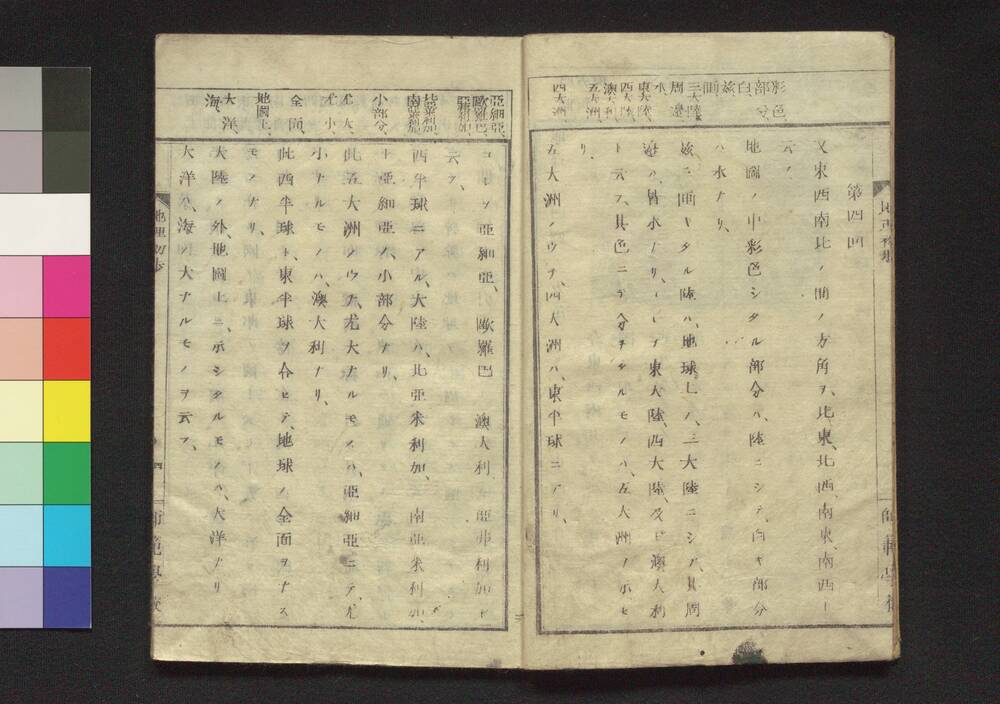 又東西南北ノ間ノ方角ヲ、北東、北西、南東、南西ト
云フ、
第四回
地圖ノ中彩色シタル部分ハ、陸ニシテ、白キ部分
ハ水ナリ、
玆ニ畫キタル陸ハ、地球上ノ、三大陸ニシテ、其周
邊ハ、皆水ナリ、
東大陸、西大陸、及ヒ澳大利
ト云フ、其色ニテ分チタルモノハ、五大洲ノ
五大洲ノウチ、四大洲ハ、東半球ニアリ、
彩色、
部分、
白、
玆、
畫、
三大陸
周邊
水、
東大陸、
西大陸、
澳大利、
五大洲、
四大洲、
亞細亞、歐羅巴、澳大利、亞弗利加ト
云フ、
西半球ニアル、大陸ハ、北亞米利加、南亞米利加
亞細亞ノ、小部分ナリ、
此五大洲ノウチ、尤大ナルモノハ、亞細亞ニテ、尤
小ナルモノハ、澳大利ナリ、
此西半球ト、東半球ヲ合セテ、地球ノ全面ヲナス
モノナリ、
大陸ノ外、地圖上ニ、示シタルモノハ、大洋ナリ
大洋ハ、海ノ大ナルモノヲ云フ、
亞細亞、
歐羅巴、
亞弗利加、
北亞米利加、
南亞米利加、
小部分、
尤大、
尤小、
全面、
地圖上、
大洋
海、
地理初歩
四
師範學校